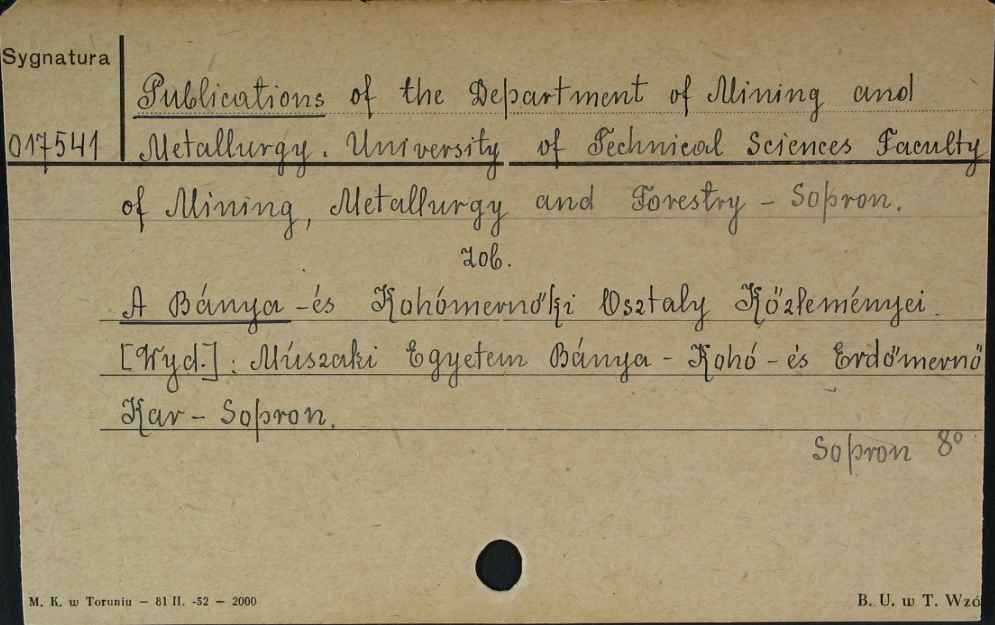 Sygnatura
Publications of the Department of Mining and
017541 Metallurgy. University of Technical Sciences Faculty
of Mining, Metallurgy and Forestry - Sopron.
zob.
A Bánya-és Kohómernőki Osztaly Közleményei.
[Wyd.]: Múszaki Egyetem Bánya-Kohó-és Erdőmernő
Kar - Sopron.
Sopron 8°
M. K. w Toruniu — 81 II. -52 — 2000 B. U. w T. Wzó